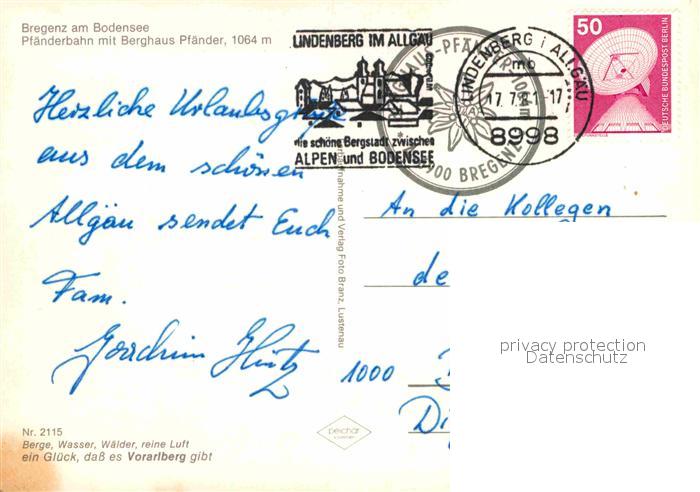 Bregenz am Bodensee
Pfänderbahn mit Berghaus Pfänder, 1064 m
LINDENBERG IM ALLGÄU
die schöne Bergstadt zwischen
ALPEN und BODENSEE
PFÄNDER 1064 m
6900 BREGENZ
LINDENBERG i ALLGÄU
mb
17.7.81-17
8998
50
DEUTSCHE BUNDESPOST BERLIN
Herzliche Urlaubsgrüße
aus dem schönen
Allgäu sendet Euch
Fam.
Joachim
und Verlag Foto Branz, Lustenau
An die Kollegen
de
1000
Di
privacy protection
Datenschutz
Nr. 2115
Berge, Wasser, Wälder, reine Luft
ein Glück, daß es Vorarlberg gibt